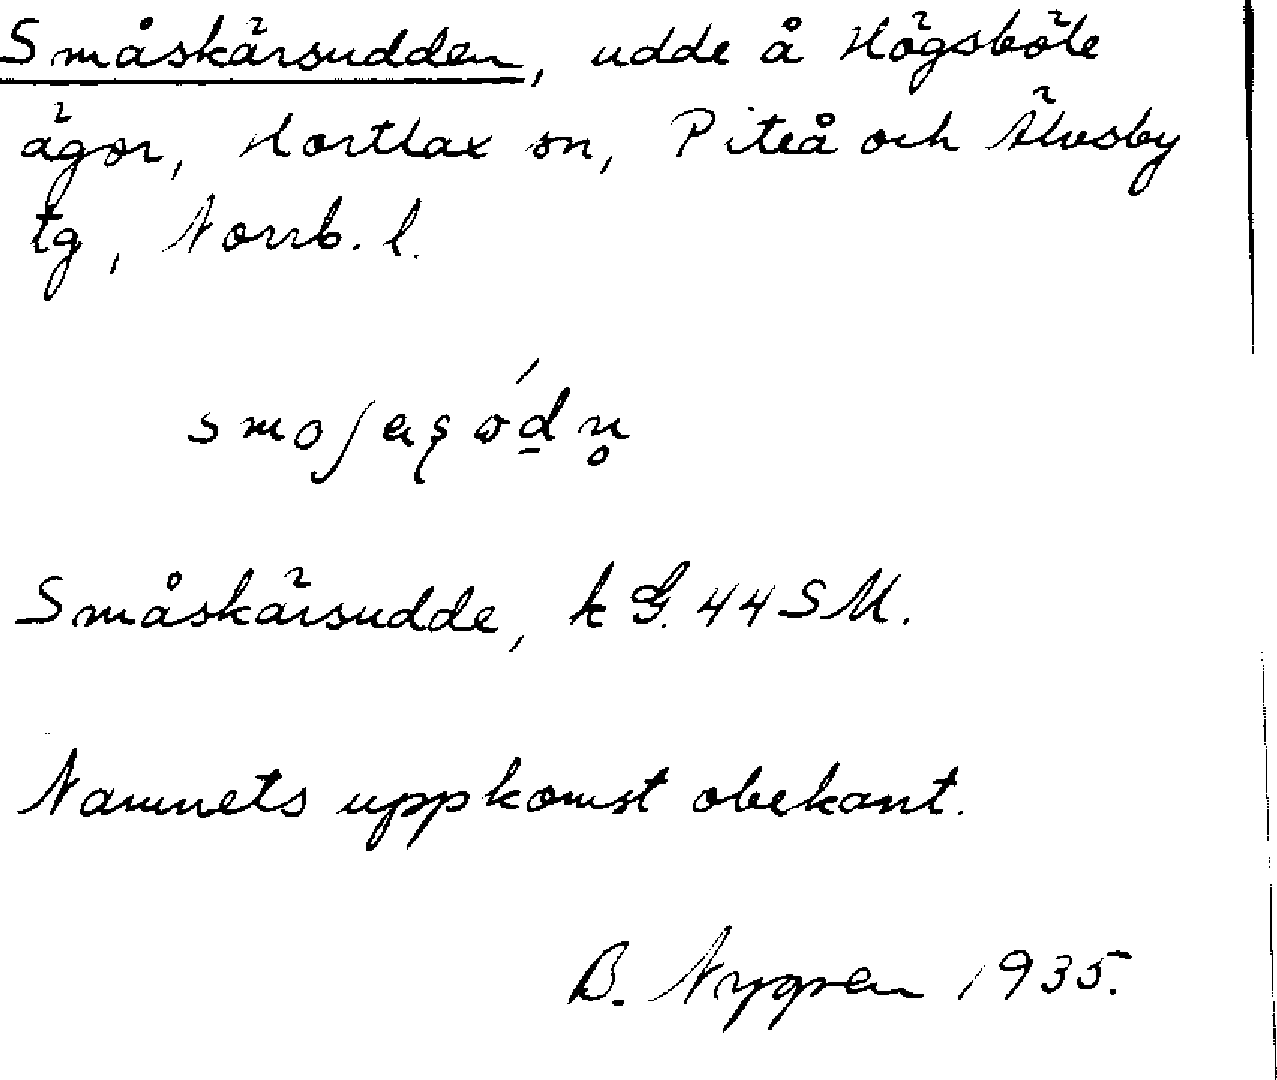 Småskärsudden, udde å Högsböle
ägor, Hortlax sn, Piteå och Älvsby
tg, Norrb. l.
Småskärsudde, k G. 44 SM.
Namnets uppkomst obekant.
B. Nygren 1935.